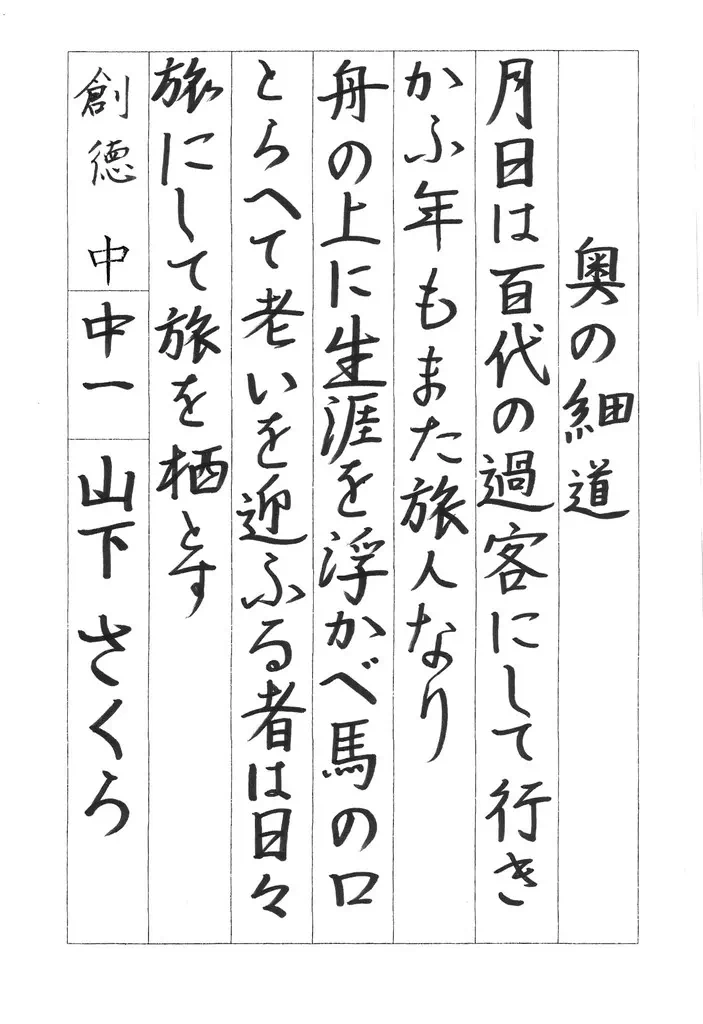 奥の細道
月日は百代の過客にして行き
かふ年もまた旅人なり
舟の上に生涯を浮かべ馬の口
とらへて老いを迎ふる者は日々
旅にして旅を栖とす
創徳 中 中一 山下 さくら